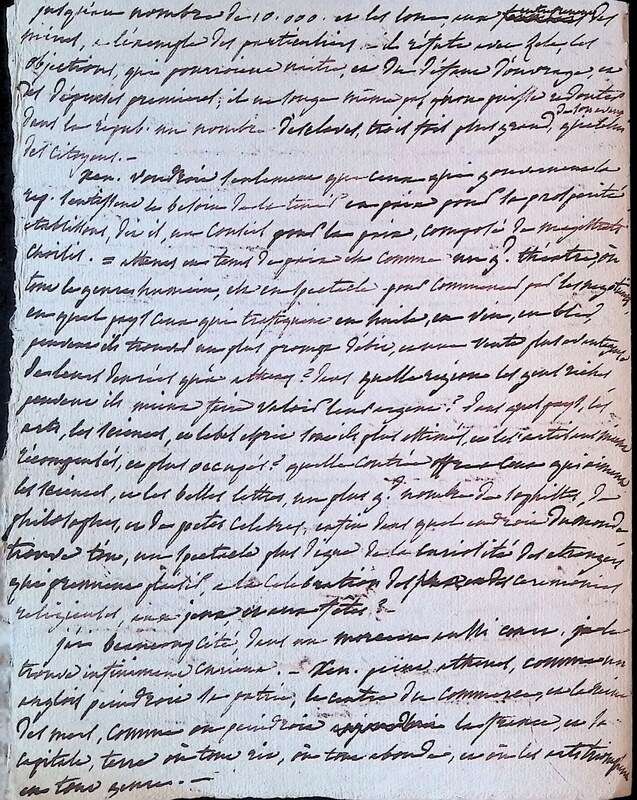 jusqu'au nombre de 10.000. et les loue aux des
mines, a l'exemple des particuliers. - il réfute avec zele les
objections, que pourroient naitre, et du défaut d'ouvrage, et
des dépenses premieres; il ne songe même pas qu'on puisse redouter
dans la répub. un nombre d'esclaves, trois fois plus grand, que celui
des citoyens. -
Xen. voudroit seulement que ceux qui gouvernent la
rep. sentissent le besoin de la tenir en paix pour sa prosperité
établissons, dit il, un conseil pour la paix, composé de magistrats
choisis. = athenes en tems de paix est comme un gd. theatre, où
tout le genre humain, est en spectacle. pour commencer par les negotians,
en quel pays ceux qui trafiquent en huile, en vin, en bled,
peuvent ils trouver un plus prompt debit, et une vente plus avantageuse
de leurs denrées qu'a athenes? dans quelle region les gens riches
peuvent ils mieux faire valoir leur argent? dans quel pays, les
arts, les sciences, et le bel esprit sont ils plus estimés, et les artistes mieux
récompensés, et plus occupés? quelle contrée offre a ceux qui aiment
les sciences, et les belles lettres, un plus gd. nombre de sophistes, de
philosophes, et de poetes celebres, enfin dans quel endroit du monde
trouve t'on, un spectacle plus digne de la curiosité des etrangers
que prennent plaisir, a la celebration des ceremonies
religieuses, aux jeux, et aux fêtes? -
j'ai beaucoup cité, dans un morceau aussi court, je le
trouve infiniment curieux. - Xen. peint athenes, comme un
anglois peindroit sa patrie, le centre du commerce, et la reine
des mers, comme on peindroit la france, et sa
capitale, terre où tout rit, où tout abonde, et où les arts triomphent
en tout genre. -